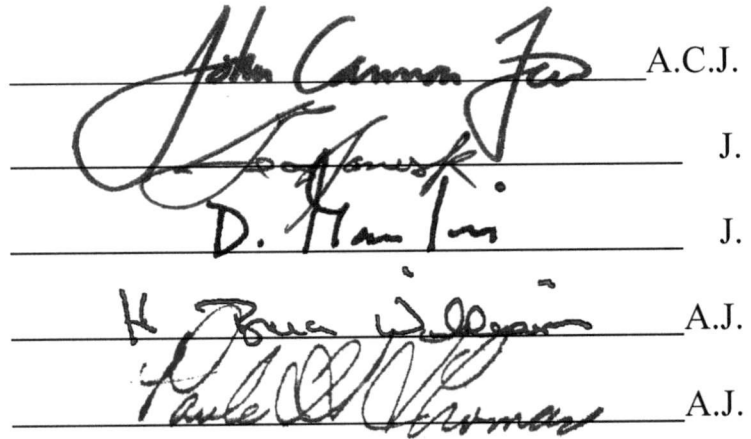 John Cannon Few A.C.J.
J.
D. J.
H Bruce Williams A.J.
Paula H. Thomas A.J.